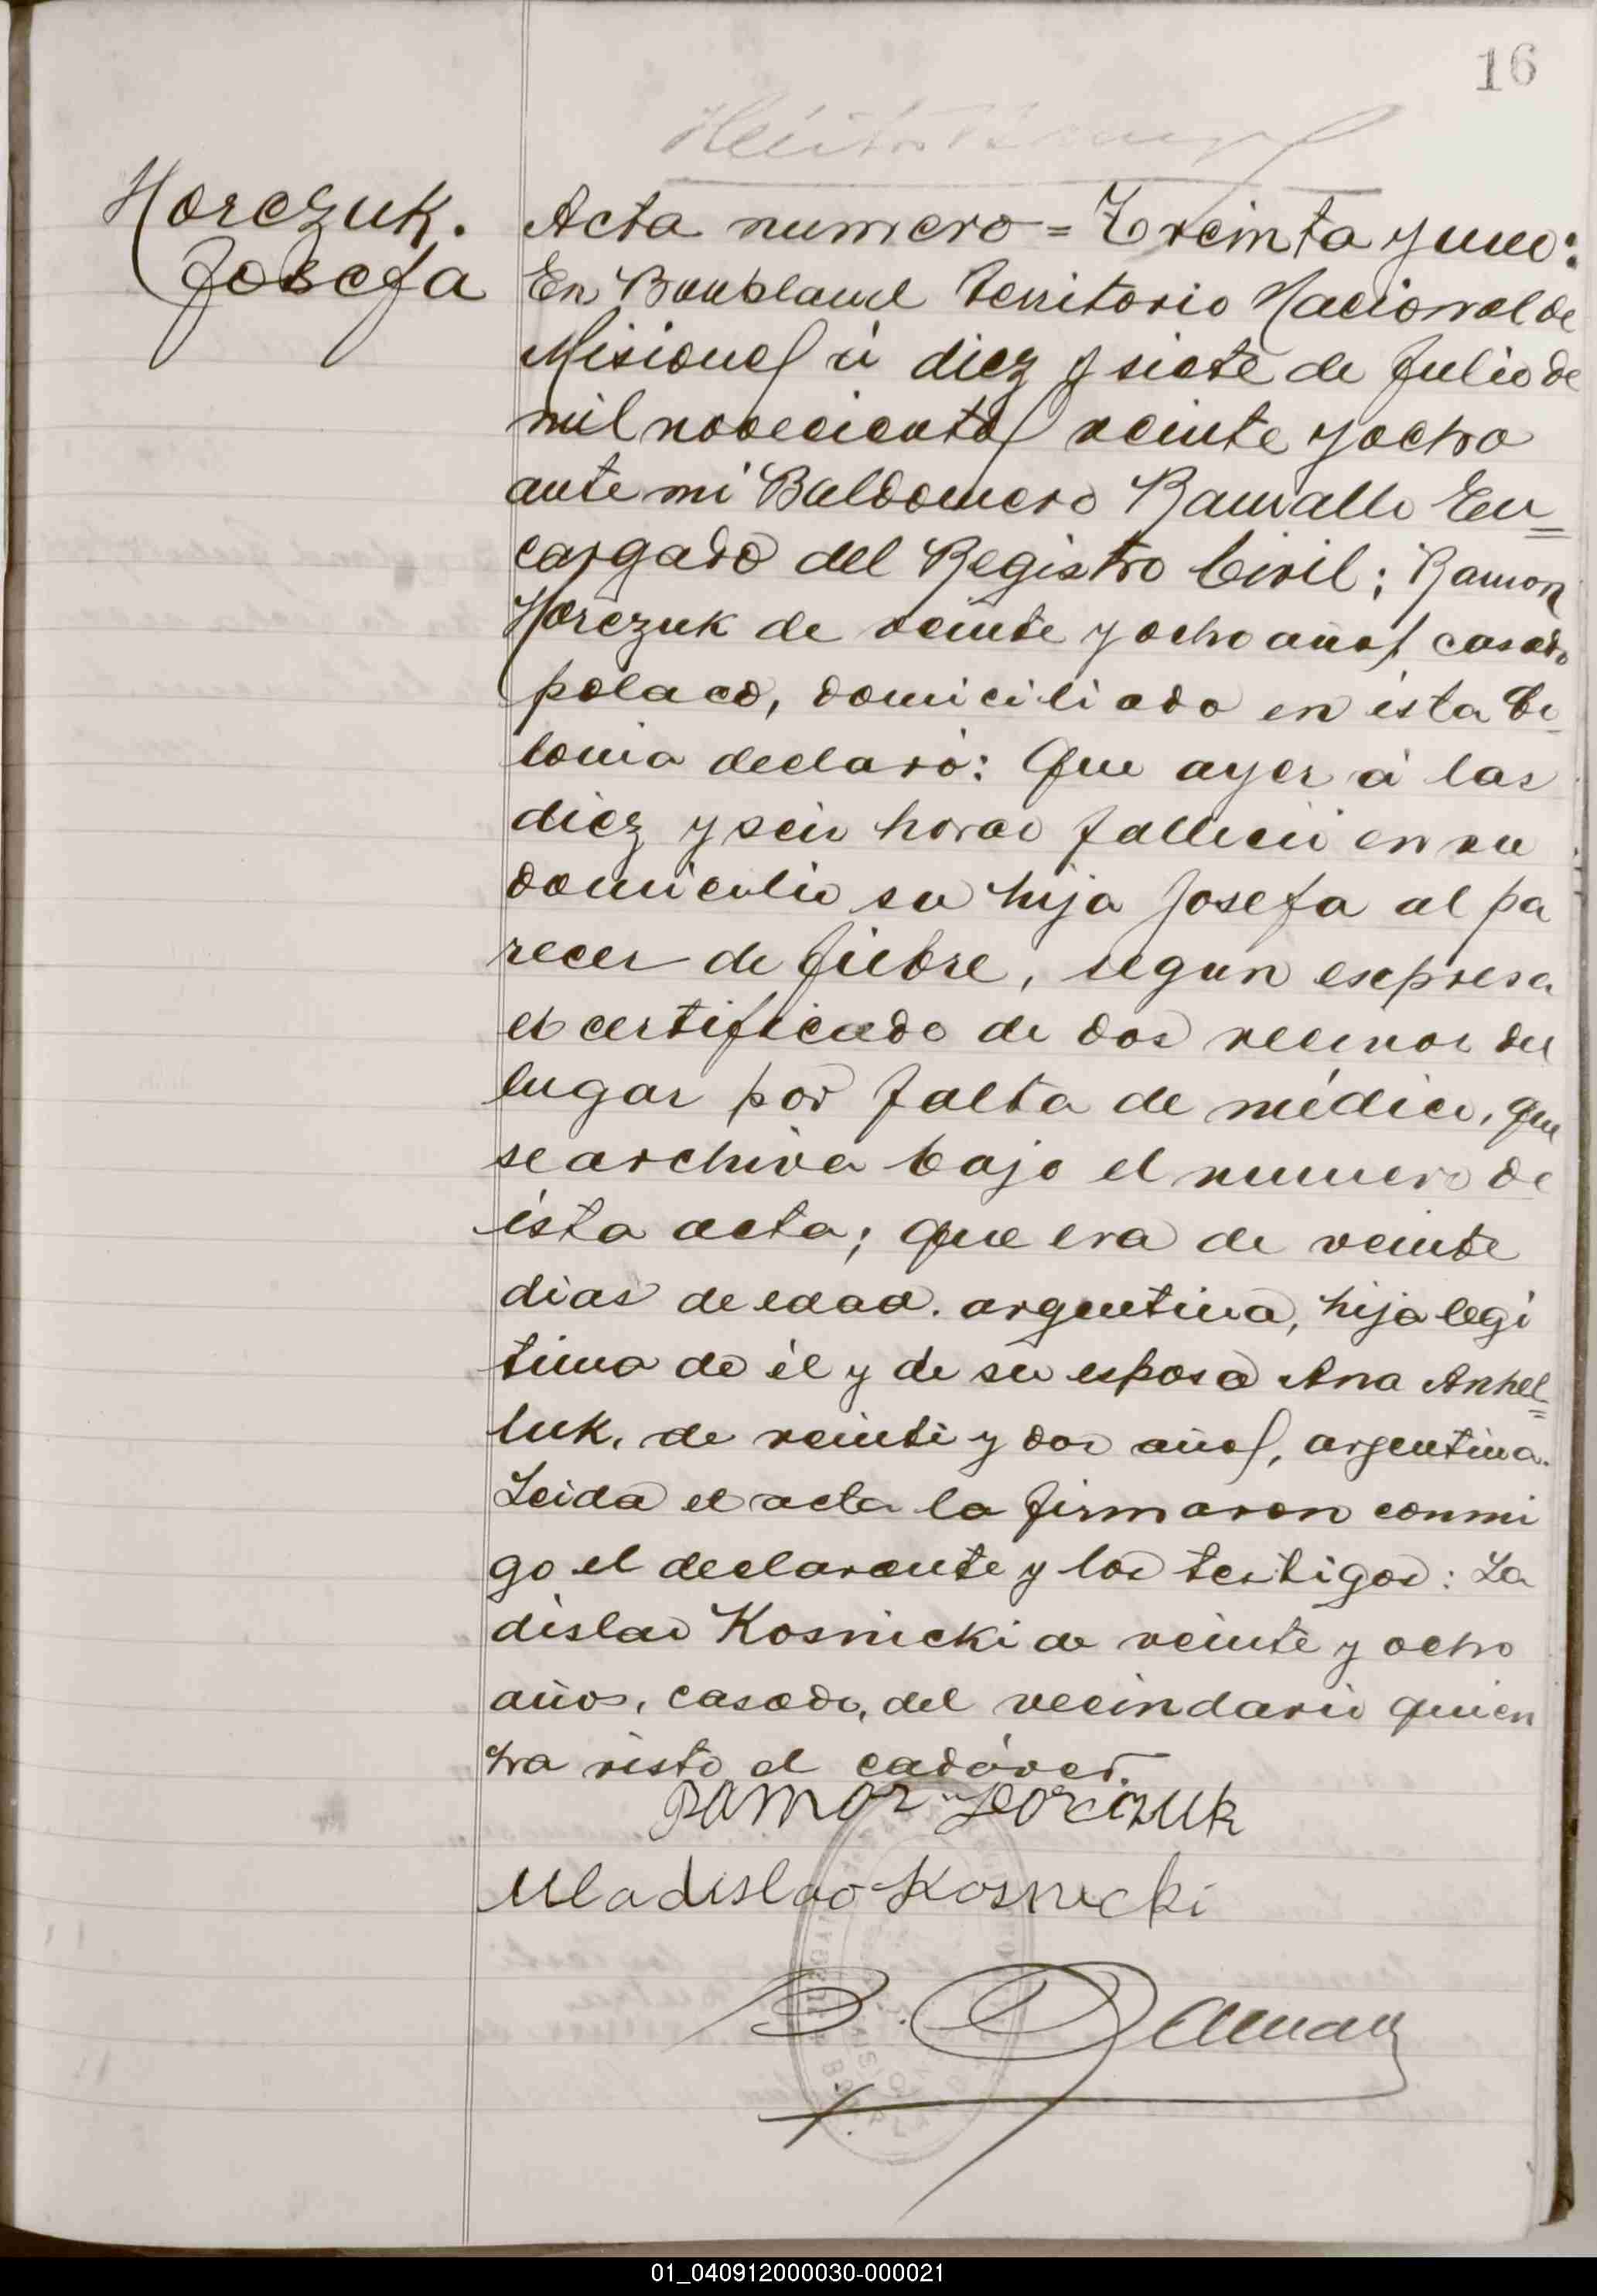 16
Horczuk.
Josefa
Acta numero = Treinta y uno:
En Bonpland Territorio Nacional de
Misiones á diez y siete de Julio de
mil novecientos veinte y ocho
ante mi Baldomero Ramallo En=
cargado del Registro Civil; Ramon
Horczuk de veinte y ocho años casado
polaco, domiciliado en ésta Co
lonia declaró: Que ayer á las
diez y seis horas falleció en su
domicilio su hija Josefa al pa
recer de fiebre, segun espresa
el certificado de dos vecinos del
lugar por falta de médico, que
se archiva bajo el numero de
ésta acta; que era de veinte
dias de edad. argentina, hija legi
tima de él y de su esposa Ana Anhel=
luk, de veinte y dos años, argentina.
Leida el acta la firmaron conmi
go el declarante y los testigos: La
dislao Kosnicki de veinte y ocho
años, casado, del vecindario quien
ha visto el cadáver.
Ramon Horczuk
Uladislao Kosnicki
01_040912000030-000021